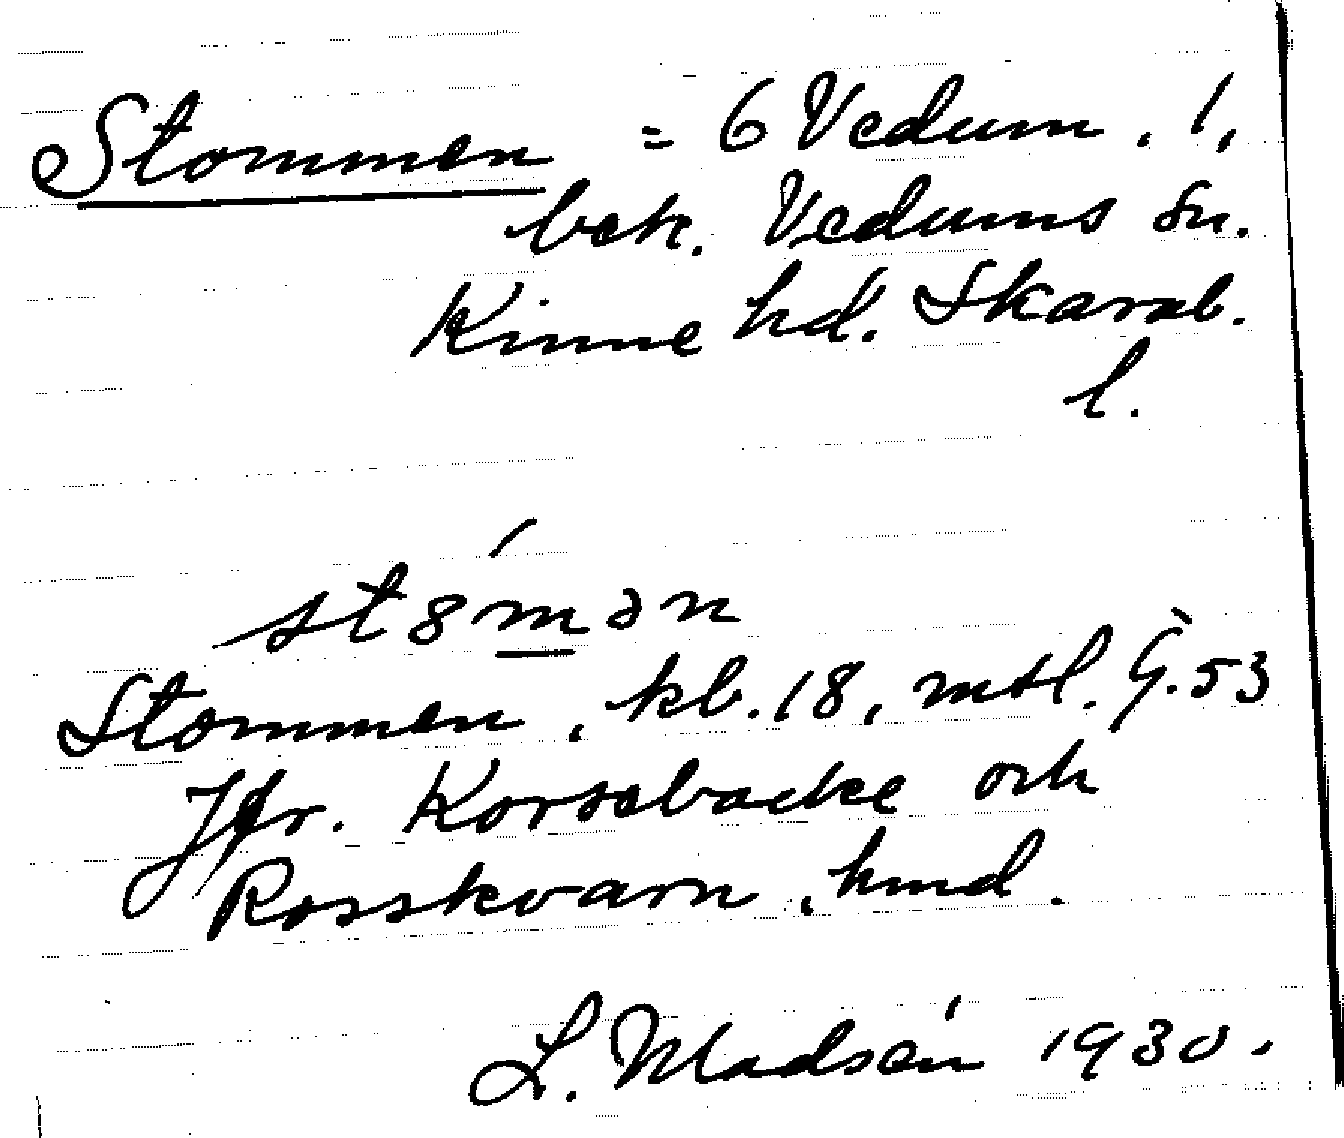 Stommen = 6 Vedum. 1,
bek. Vedums sn.
Kinne hd. Skarab.
l.
st8́mən
Stommen, kb. 18, mtl. G. 53
Jfr. Korsabacke och
Rosskvarn, hmd.
L. Madsén 1930.